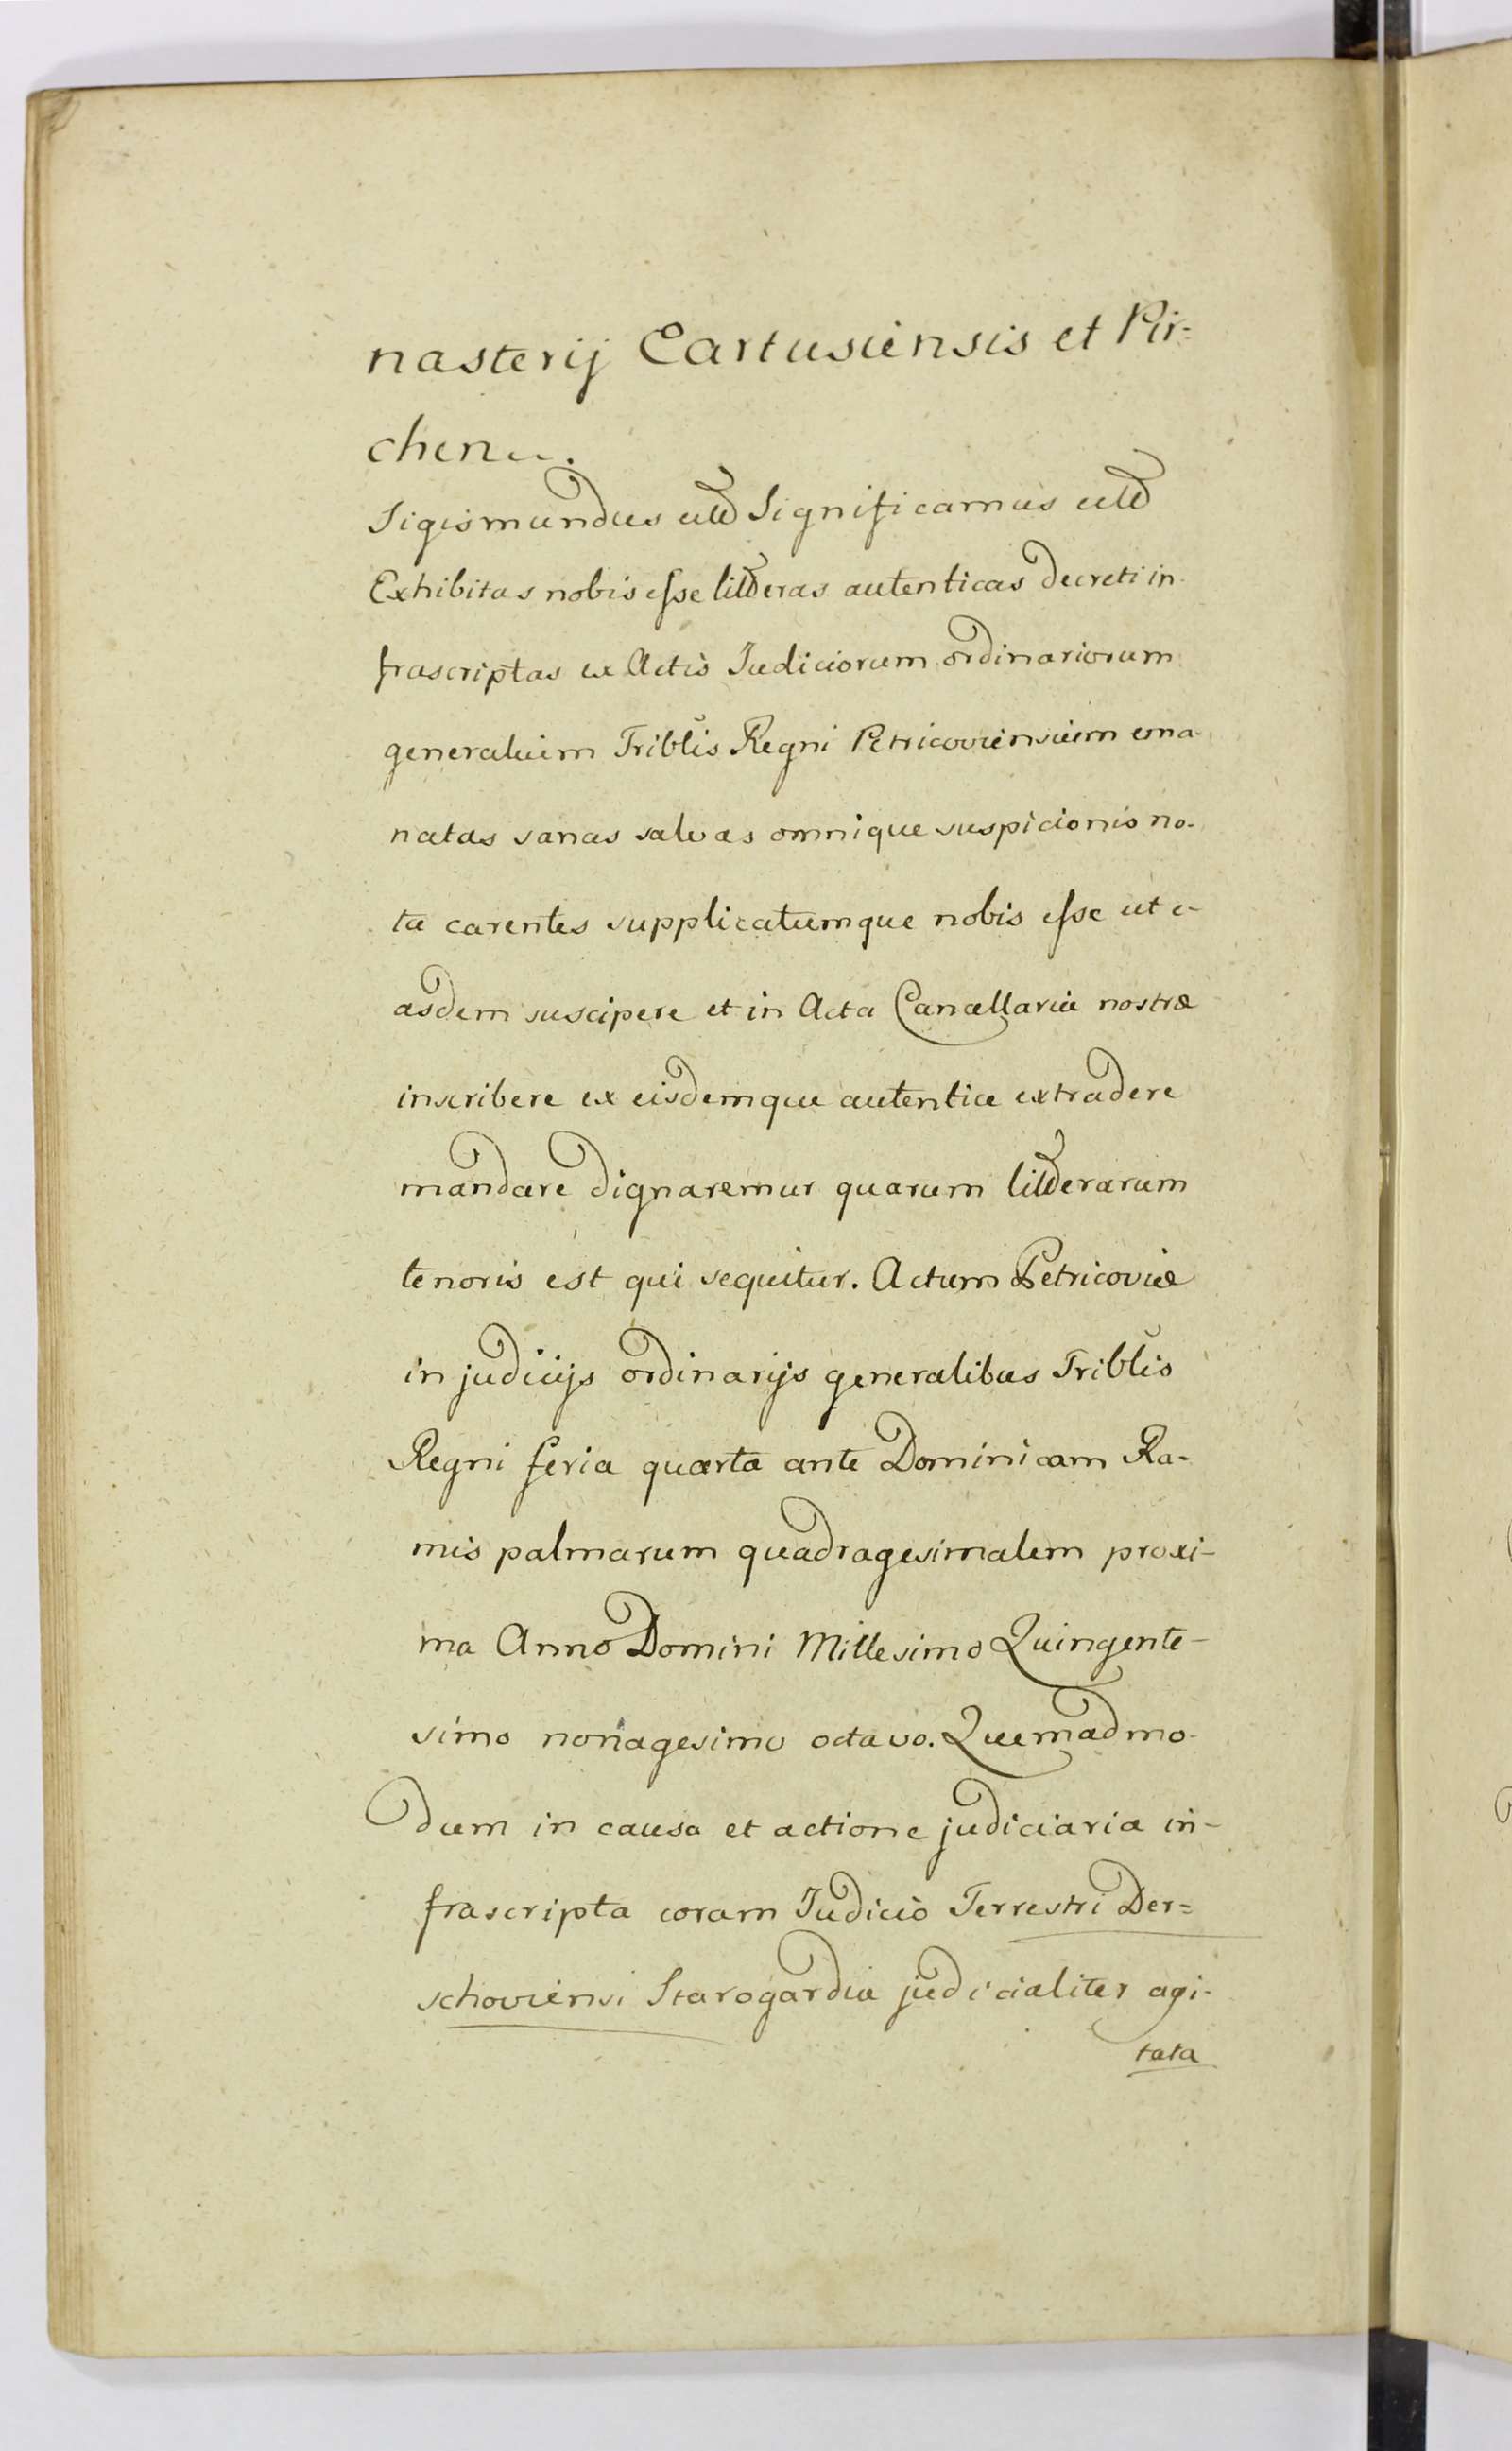 nasterij Cartusiensis et Pir=
chen
Sigismundus Significamus
Exhibitas nobis esse litteras autenticas decreti in-
frascriptas ex Actis Iudiciorum ordinariorum
generalium Triblis Regni Petricoviensium ema-
natas sanas salvas omnique suspicionis no-
ta carentes supplicatumque nobis esse ut e-
asdem suscipere et in Acta Cancellariæ nostræ
inscribere ex eisdemque autentice extradere
mandare dignaremur quarum litterarum
tenoris est qui sequitur. Actum Petricoviæ
in judicijs ordinarijs generalibus Triblis
Regni feria quarta ante Dominicam Ra-
mis palmarum quadragesimalem proxi-
ma Anno Domini Millesimo Quingente-
simo nonagesimo octavo. Quemadmo-
dum in causa et actione judiciaria in-
frascripta coram Iudicio Terrestri Der=
schoviensi Starogardiæ judicialiter agi-
tata